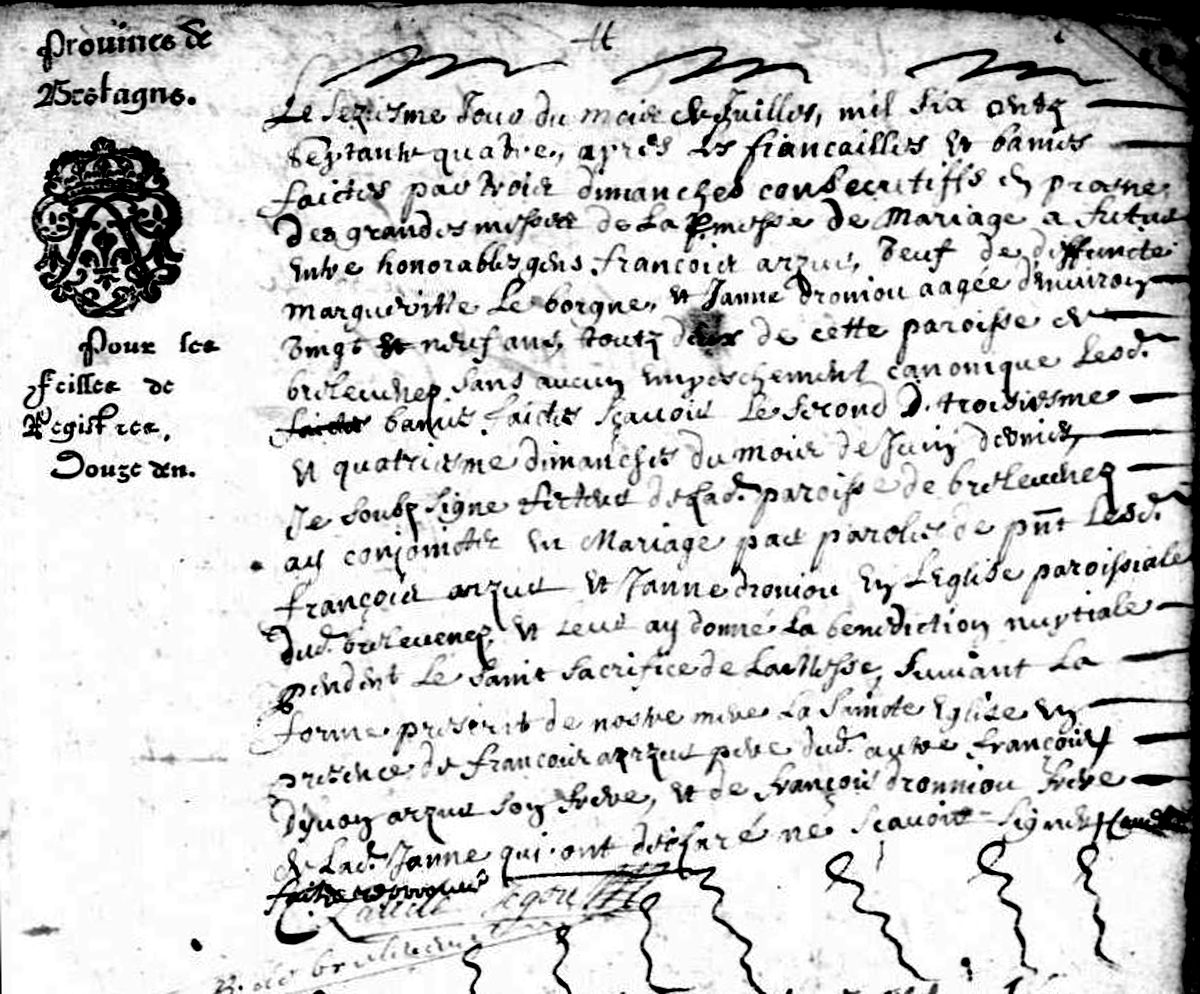 Prouince de
Bretagne.
Pour les
Feilles de
Registres,
Douze den.
Le seziesme Jour du mois de Juillet, mil six centz
septante quatre, apres les fiancailles et bannes
faictes par trois dimanches consecutiffs en prosne
des grandes messes de la promesse de Mariage a futur
entre honorables gens françois arzur, veuf de deffuncte
margueritte Le borgne, et Janne droniou aagée d'enuiron
vingt et neuf ans, toutz deux de cette paroisse de
breleuenez sans aucun empeschement canonique lesd.
bannes faictes sçauoir le second, troisiesme
et quatriesme dimanches du mois de Juin dernier,
Je soubz signé recteur de lad. paroisse de breleuenez
ay conjoincter en Mariage par parolles de pnt lesd.
françois arzur et Janne droniou en L'eglise paroissiale
dud. breleuenez, et leur ay donné la benediction nuptiale
pendent le sainct sacrifice de la Messe, suiuant la
forme prescrit de nostre mere la saincte Eglise en
presence de francois arzur pere dud. autre francois
d'yuon arzur son frere, et de françois dronniou frere
de lad. Janne qui ont declaré ne sçauoir signer